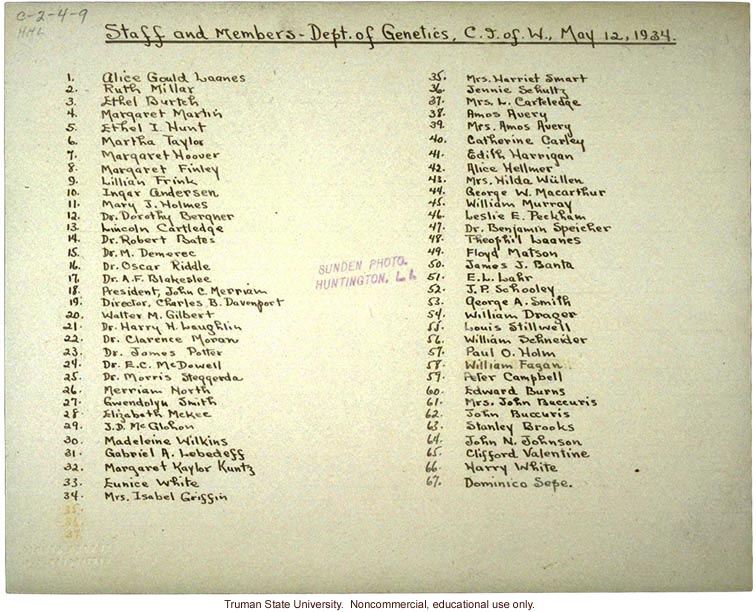 C-2-4-9
HHL
Staff and Members - Dept. of Genetics, C.I. of W., May 12, 1934.
1. Alice Gould Laanes
2. Ruth Millar
3. Ethel Burtch
4. Margaret Martin
5. Ethel I. Hunt
6. Martha Taylor
7. Margaret Hoover
8. Margaret Finley
9. Lillian Frink
10. Ingar Andersen
11. Mary J. Holmes
12. Dr. Dorothy Bergner
13. Lincoln Cartledge
14. Dr. Robert Bates
15. Dr. M. Demerec
16. Dr. Oscar Riddle
17. Dr. A.F. Blakeslee
18. President, John C. Merriam
19. Director, Charles B. Davenport
20. Walter M. Gilbert
21. Dr. Harry H. Laughlin
22. Dr. Clarence Moran
23. Dr. James Potter
24. Dr. E.C. McDowell
25. Dr. Morris Steggorda
26. Merriam North
27. Gwendolyn Smith
28. Elizabeth McKee
29. J.D. McGlohon
30. Madeleine Wilkins
31. Gabriel A. Lebedeff
32. Margaret Kaylor Kuntz
33. Eunice White
34. Mrs. Isabel Griffin
35.
36.
37.
35. Mrs. Harriet Smart
36. Jennie Schultz
37. Mrs. L. Carteledge
38. Amos Avery
39. Mrs. Amos Avery
40. Catherine Carley
41. Edith Harrigan
42. Alice Hellmer
43. Mrs. Hilda Wüllen
44. George W. Macarthur
45. William Murray
46. Leslie E. Peckham
47. Dr. Benjamin Speicher
48. Theophil Laanes
49. Floyd Matson
50. James J. Banta
51. E.L. Lahr
52. J.P. Schooley
53. George A. Smith
54. William Drager
55. Louis Stillwell
56. William Schneider
57. Paul O. Holm
58. William Fagan
59. Peter Campbell
60. Edward Burns
61. Mrs. John Buccuris
62. John Buccuris
63. Stanley Brooks
64. John N. Johnson
65. Clifford Valentine
66. Harry White
67. Dominico Sepe.
SUNDEN PHOTO.
HUNTINGTON, L.I.
Truman State University. Noncommercial, educational use only.